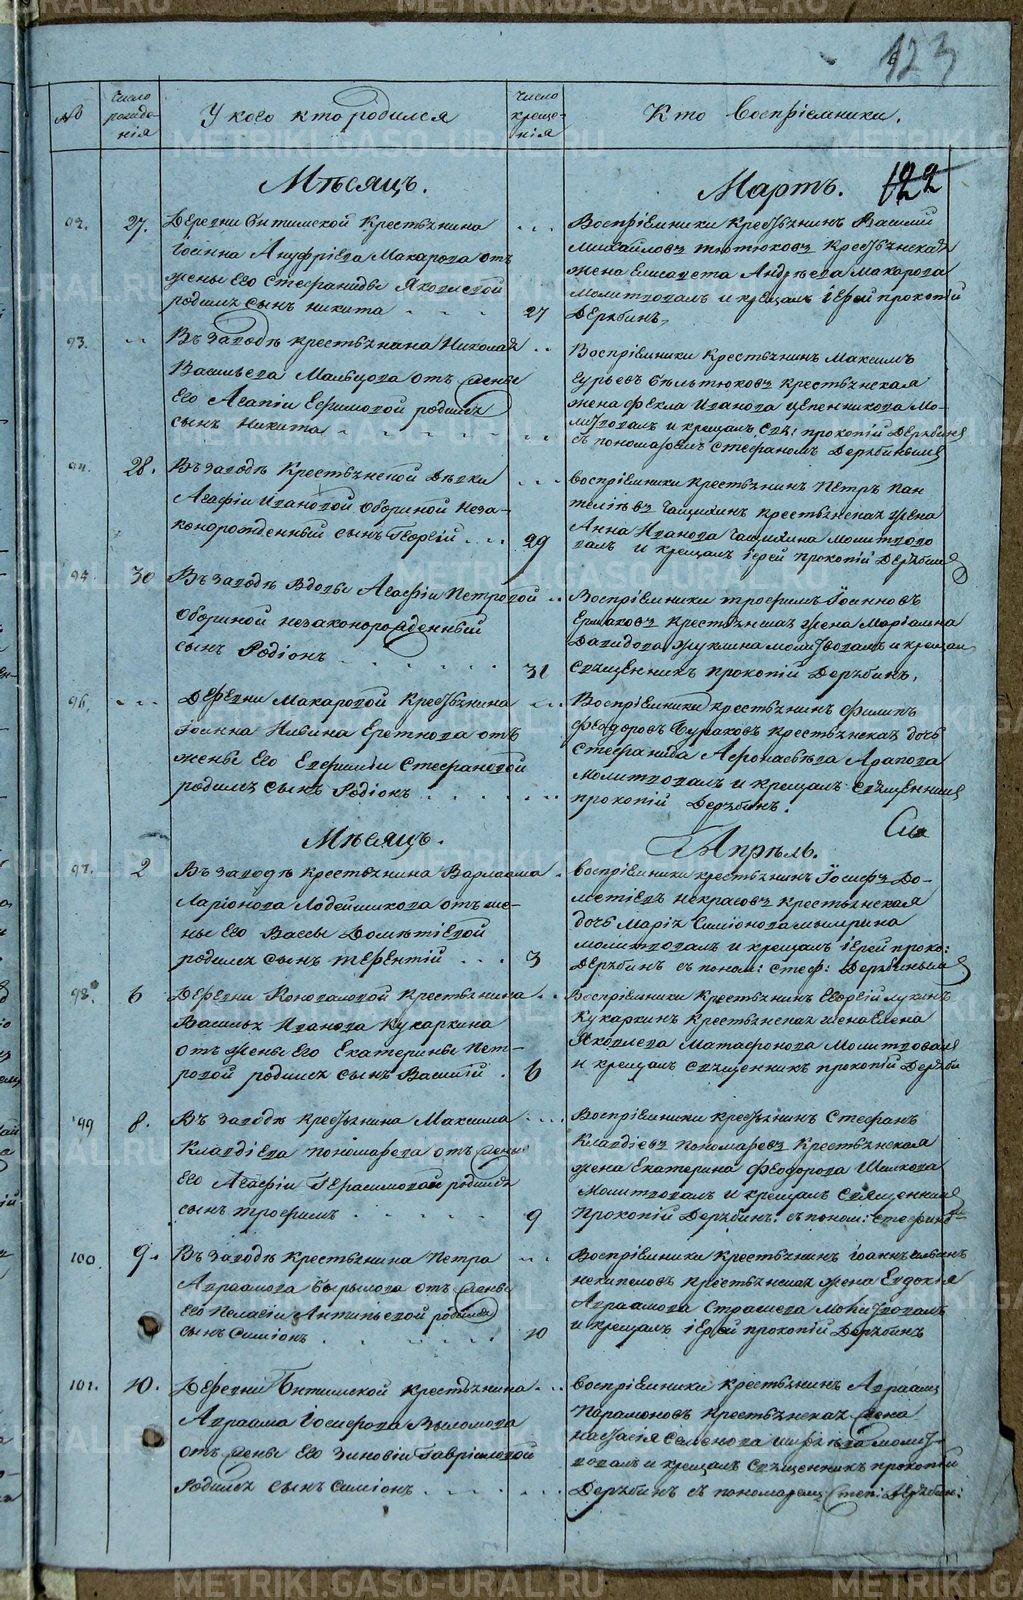 123
№
Число рожде-нія
У кого кто родился
Число креще-нія
Кто Воспріемники.
Мѣсяцъ.
Мартъ.
122
92.
27.
Деревни Битимской Крестьянина
Іоанна Ануфріева Макарова отъ
жены Его Стефаниды Яковлевой
родился сынъ Никита
27
Воспріемники Крестьянинъ Василій
Михайловъ Тютюковъ Крестьянская
жена Елисавета Андреева Макарова
Молитвовалъ и крещалъ Іерей прокопій
Дерябинъ,
93.
Въ Заводѣ крестьянина Николая
Васильева Мальцова отъ жены
Его Агапіи Ефимовой родился
сынъ Никита
Воспріемники Крестьянинъ Максимъ
Гурьевъ Бѣльтюковъ Крестьянская
жена Фекла Иванова Цепенникова Мо-
литвовалъ и крещалъ Свя: прокопій Дерябинъ
съ пономаремъ Стефаномъ Дерябинымъ
94.
28.
Въ Заводѣ Крестьянской Дѣвки
Агафіи Ивановой Обориной Неза-
конорожденный сынъ Георгій
29
Воспріемники крестьянинъ Петръ Пан
телѣевъ Чащихинъ крестьянская жена
Анна Иванова Чащихина Молитвово
валъ и крещалъ іерей прокопій Дерябинъ
30
Въ Заводѣ Вдовы Агафіи Петровой
Обориной незаконорожденный
сынъ Родіонъ
31
Воспріемники трофимъ Іоанновъ
Ермаковъ Крестьянская жена Маріамна
Давидова Жуклина молитвовалъ и крещал
Священникъ Прокопій Дерябинъ.
96.
Деревни Макаровой Крестьянина
Іоанна Ильина Еретнова отъ
жены Его Евфиміи Стефановой
родился сынъ Родіонъ
Воспріемники крестьянинъ Филипъ
Феодоровъ Бураковъ Крестьянская дочь
Стефанида Афонасьева Арапова
молитвовалъ и крещалъ Священникъ
прокопій Дерябинъ.
Мѣсяцъ.
Апрѣль.
97.
2
Въ заводѣ крестьянина Варлаама
Ларіонова Лодейщикова отъ же-
ны его Вассы Дометіевой
родился сынъ Терентій
3
Воспріемники крестьянинъ Іосифъ До-
метіевъ Некрасовъ Крестьянская
дочь Марія Симіонова
молитвовалъ и крещалъ іерей проко:
Дерябинъ съ поном: Стеф: Дерябинымъ
98.
6
Деревни Коноваловой Крестьянина
Василья Иванова Кукаркина
отъ жены Его Екатерины Пет-
ровой родился сынъ Василій
6
Воспріемники Крестьянинъ Георгій Лукинъ
Кукаркинъ Крестьянская жена Елена
Яковлева Матафонова Молитвовалъ
и крещалъ Священникъ прокопій Деряби
99
8.
Въ Заводѣ Крестьянина Максима
Клавдіева Пономарева отъ жены
Его Агафіи Герасимовой родился
сынъ Трофимъ
9
Воспріемники Крестьянинъ Стефанъ
Клавдіевъ Пономаревъ Крестьянская
жена Екатерина Феодорова Шалкова
Молитвовалъ и крещалъ Священникъ
Прокопій Дерябинъ. съ поном: Стефано
100
9.
Въ Заводѣ Крестьянина Петра
Авраамова отъ жены
Его Пелагіи Антипьевой родился
сынъ Симіонъ
10
Воспріемники Крестьянинъ Іоаннъ
Некипеловъ Крестьянская жена Евдокія
Авраамова Страшева Молитвовалъ
и крещалъ іерей прокопій Дерябинъ
101.
10.
Деревни Битимской Крестьянина
Авраама Іосифова Выломова
отъ жены Его Зиновіи Гавріиловой
Родился сынъ Симіонъ
Воспріемники Крестьянинъ Авраамъ
Парамоновъ крестьянская жена
Настасія Семенова молит-
вовалъ и крещалъ Священникъ прокопій
Дерябинъ съ пономаремъ: Степ: Дерябин:
METRIKI.GASO-URAL.RU